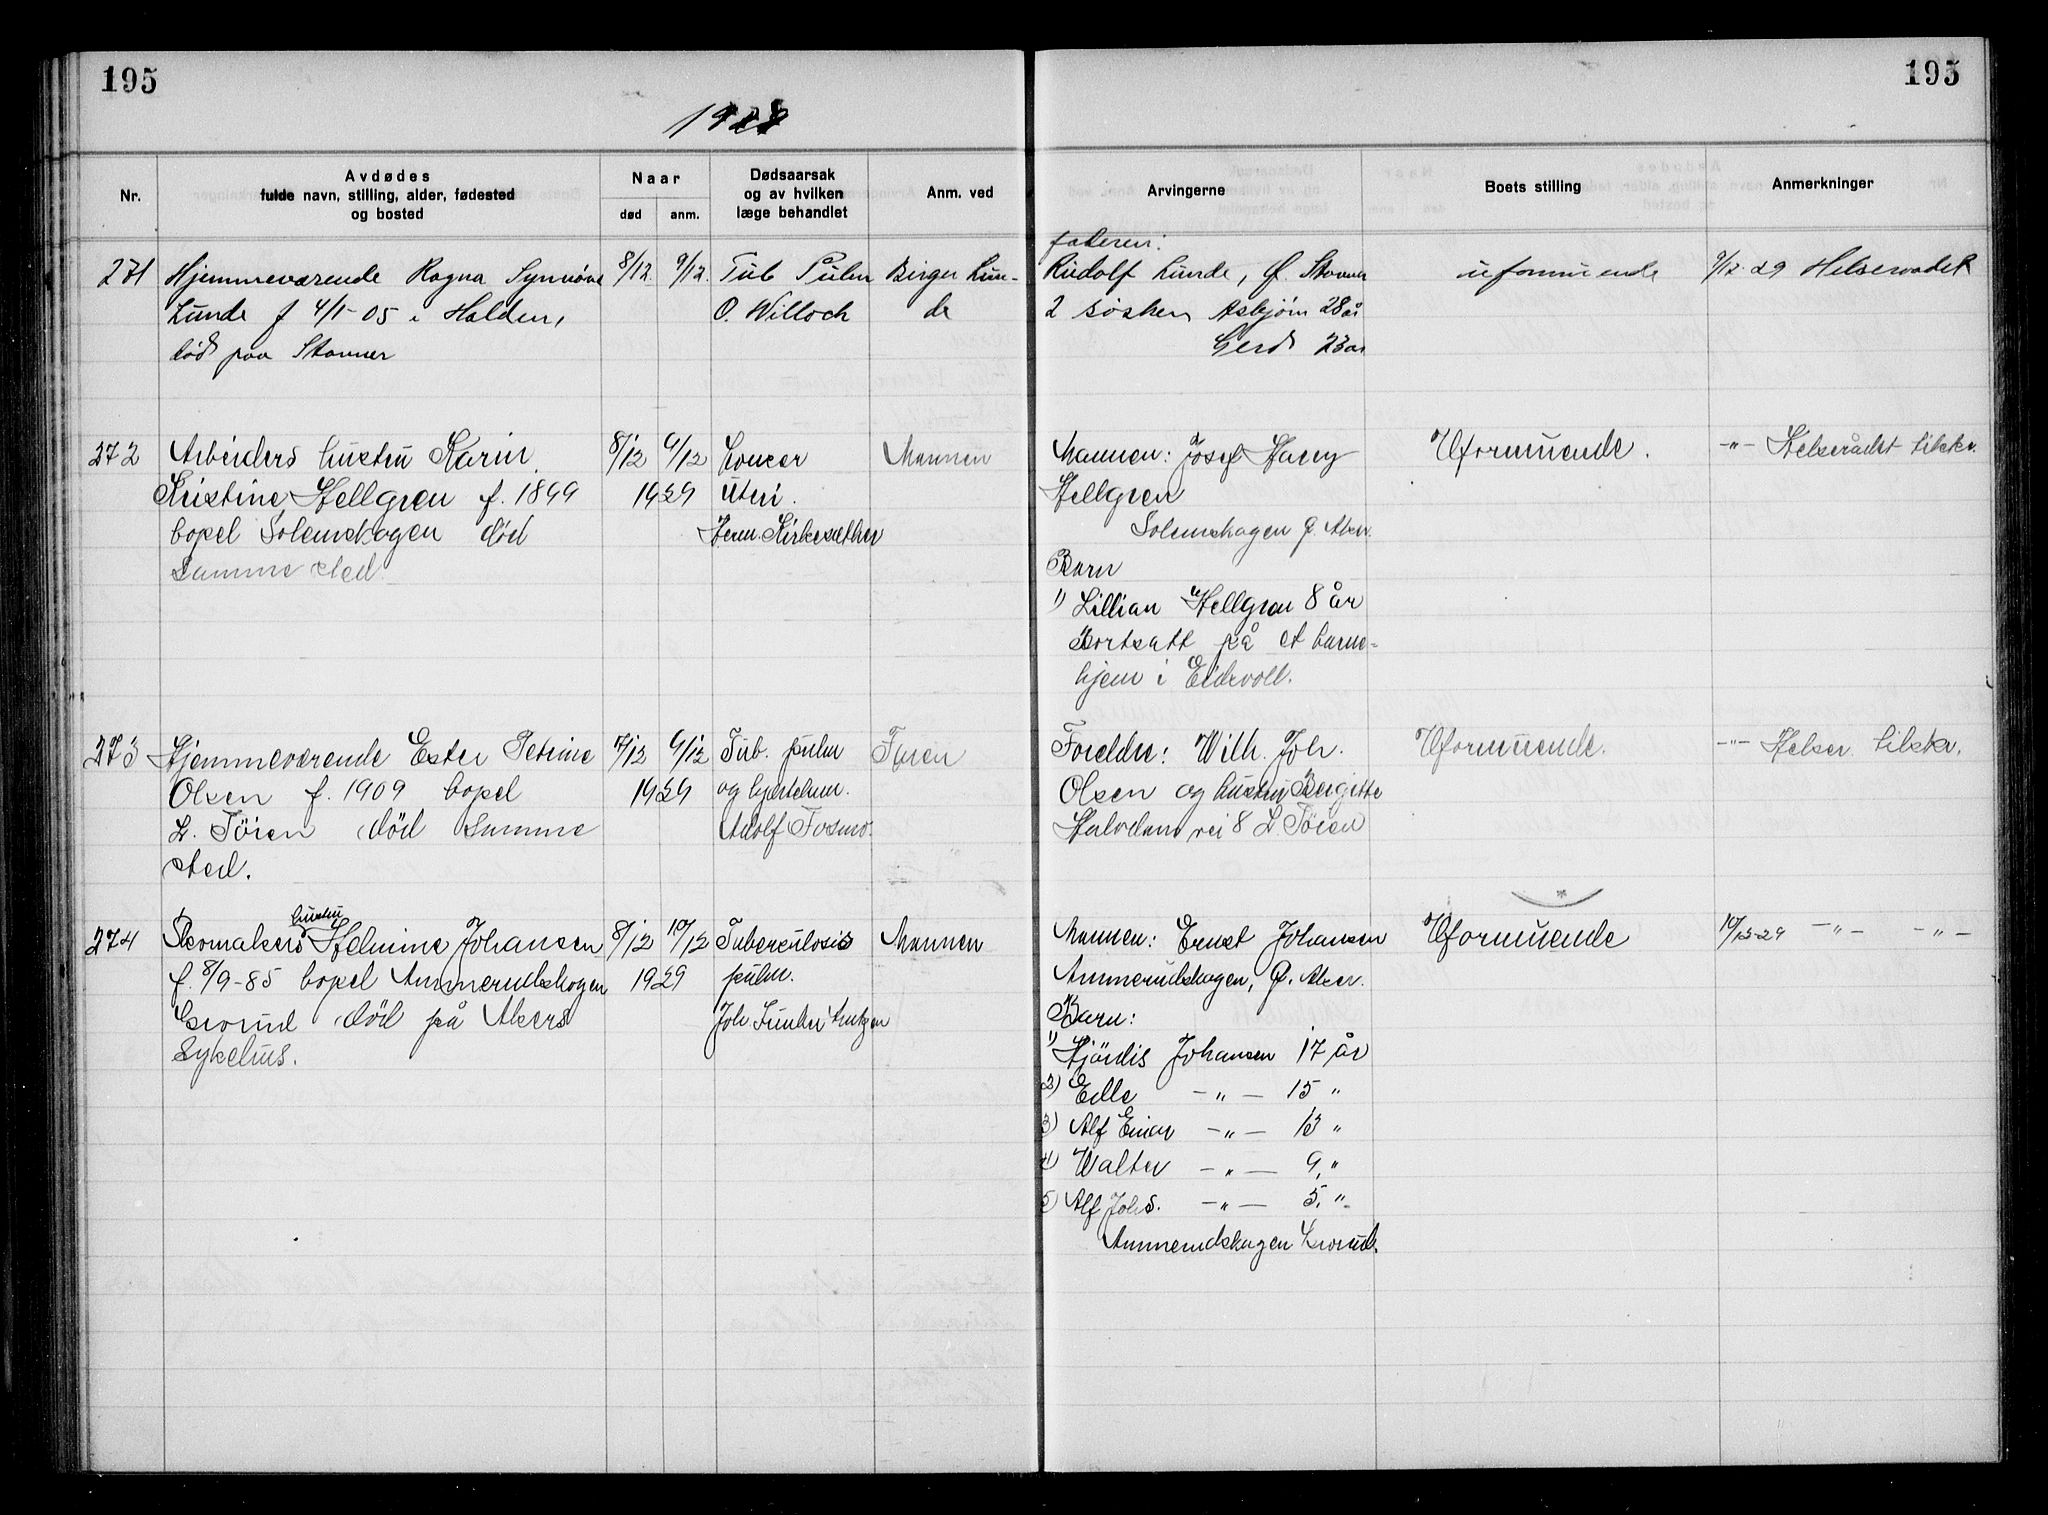 195
195
1928
Nr.
Avdødes
fulde navn, stilling, alder, fødested
og bosted
Naar
død
anm.
Dødsaarsak
og av hvilken
læge behandlet
Anm. ved
Arvingerne
Boets stilling
Anmerkninger
271
Hjemmeværende Ragna Synnøve
Lunde f 4/1-05 i Halden,
død paa Stovner
8/12
9/12.
Tub Pulm
O. Willoch
Birger Lun-
de
faderen:
Rudolf Lunde, Ø. Stovner
2 søsken Asbjørn 28 år
Gerd 23 år
uformuende
9/12-29 Helseraadet
272
Arbeiders hustru Karin
Kristine Hellgren f. 1899
bopel Solemskogen død
samme sted.
8/12
9/12
1929
Cancer
uteri.
Herm. Kirkesæther
Mannen
Mannen: Josef Harry
Hellgren
Solemskogen Ø. Aker.
Barn
1) Lillian Hellgren 8 år
Bortsatt på et barne-
hjem i Eidsvoll.
Uformuende.
-"- Helserådet tilskr.
273
Hjemmeværende Ester Petrine
Olsen f. 1909 bopel
L. Töien død samme
sted.
7/12
9/12
1929
Tub. pulm
og hjertelam.
Adolf Fosmo.
Faren
Foreldre: Wilh. Joh.
Olsen og hustru Birgitte
Halvdans vei 8 L. Töien
Uformuende.
-"- Helser. tilskr.
274
Skomakers hustru Helmine Johansen
f. 8/9-85 bopel Ammerudskogen
Grorud død på Akers
Sykehus.
8/12
10/12
1929
Tuberculosis
pulm.
Mannen
Mannen: Ernst Johansen
Ammerudskogen, Ø. Aker.
Barn:
1) Hjördis Johansen 17 år
2) -"- 15 "
3) Alf Einar -"- 13 "
4) Walter -"- 9 "
5) Alf Johs. -"- 5 "
Ammerudskogen Grorud.
Uformuende
10/12-29 -"- -"-